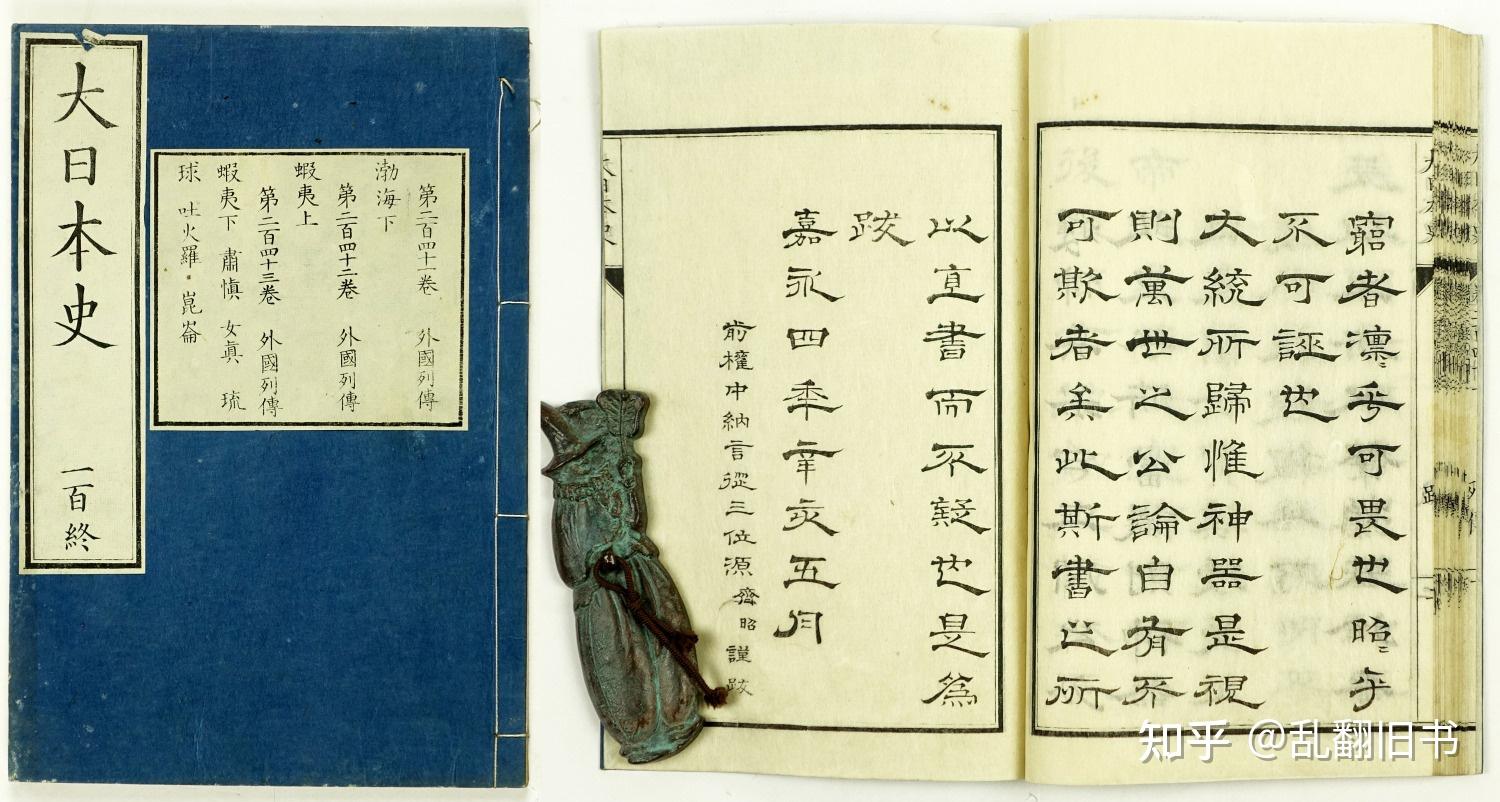 大日本史 一百終
第二百四十一卷 外國列傳
渤海下
第二百四十二卷 外國列傳
蝦夷上
第二百四十三卷 外國列傳
蝦夷下 肅愼 女眞 琉
球 吐火羅・崑崙
窮者凛〻乎可畏也昭〻乎
不可誣也
大統所歸惟神器是視
則萬世之公論自有不
可欺者矣此斯書之所
以直書而不疑也是爲
跋
嘉永四年辛亥五月
前權中納言從三位源齊昭謹跋
知乎 @乱翻旧书